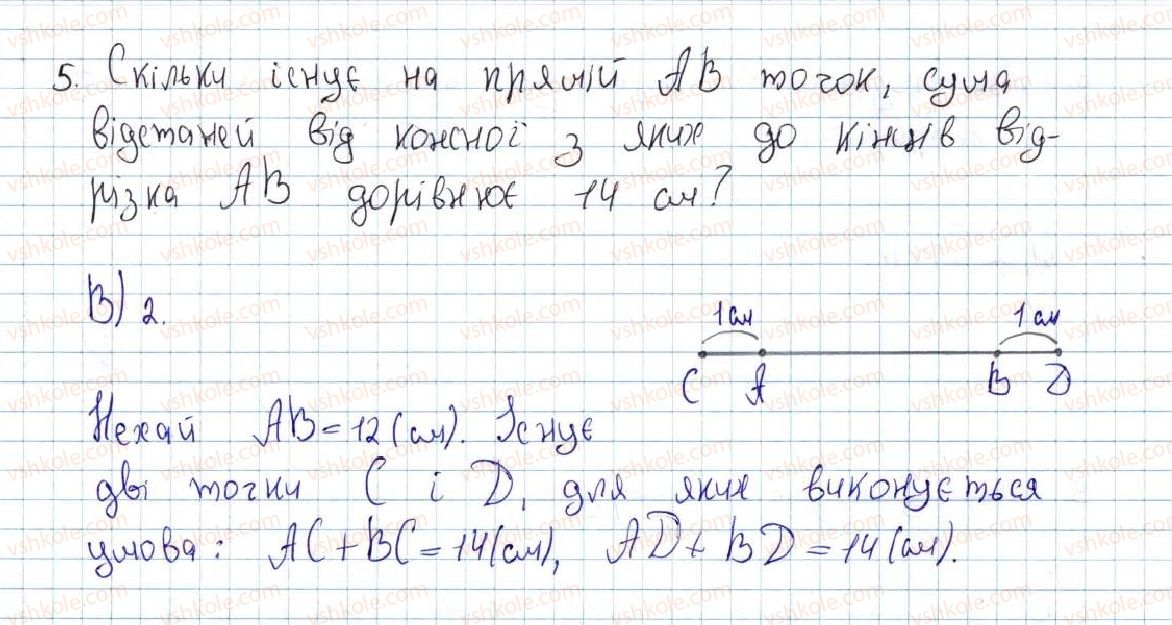 5. Скільки існує на прямій AB точок, сума
відстаней від кожної з яких до кінців від-
різка AB дорівнює 14 см?
В) 2.
1 см 1 см
C A B D
Нехай AB = 12 (см). Існує
дві точки C і D, для яких виконується
умова: AC + BC = 14 (см), AD + BD = 14 (см).